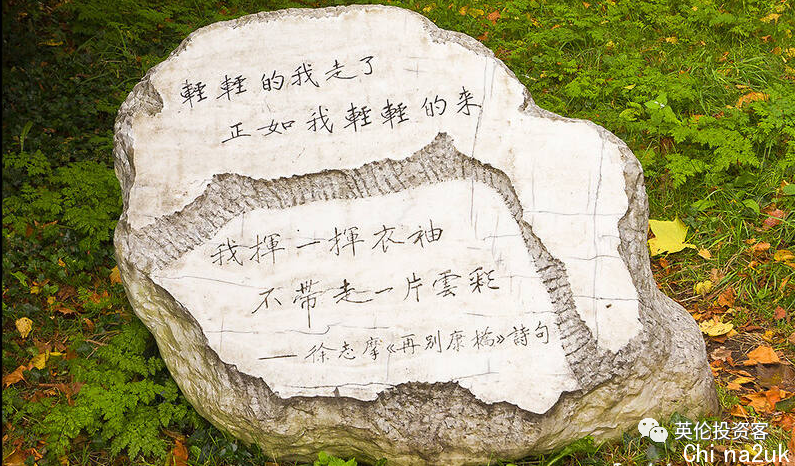 輕輕的我走了
正如我輕輕的來
我揮一揮衣袖
不帶走一片雲彩
—徐志摩《再別康橋》詩句
英伦投资客
Chi na2uk